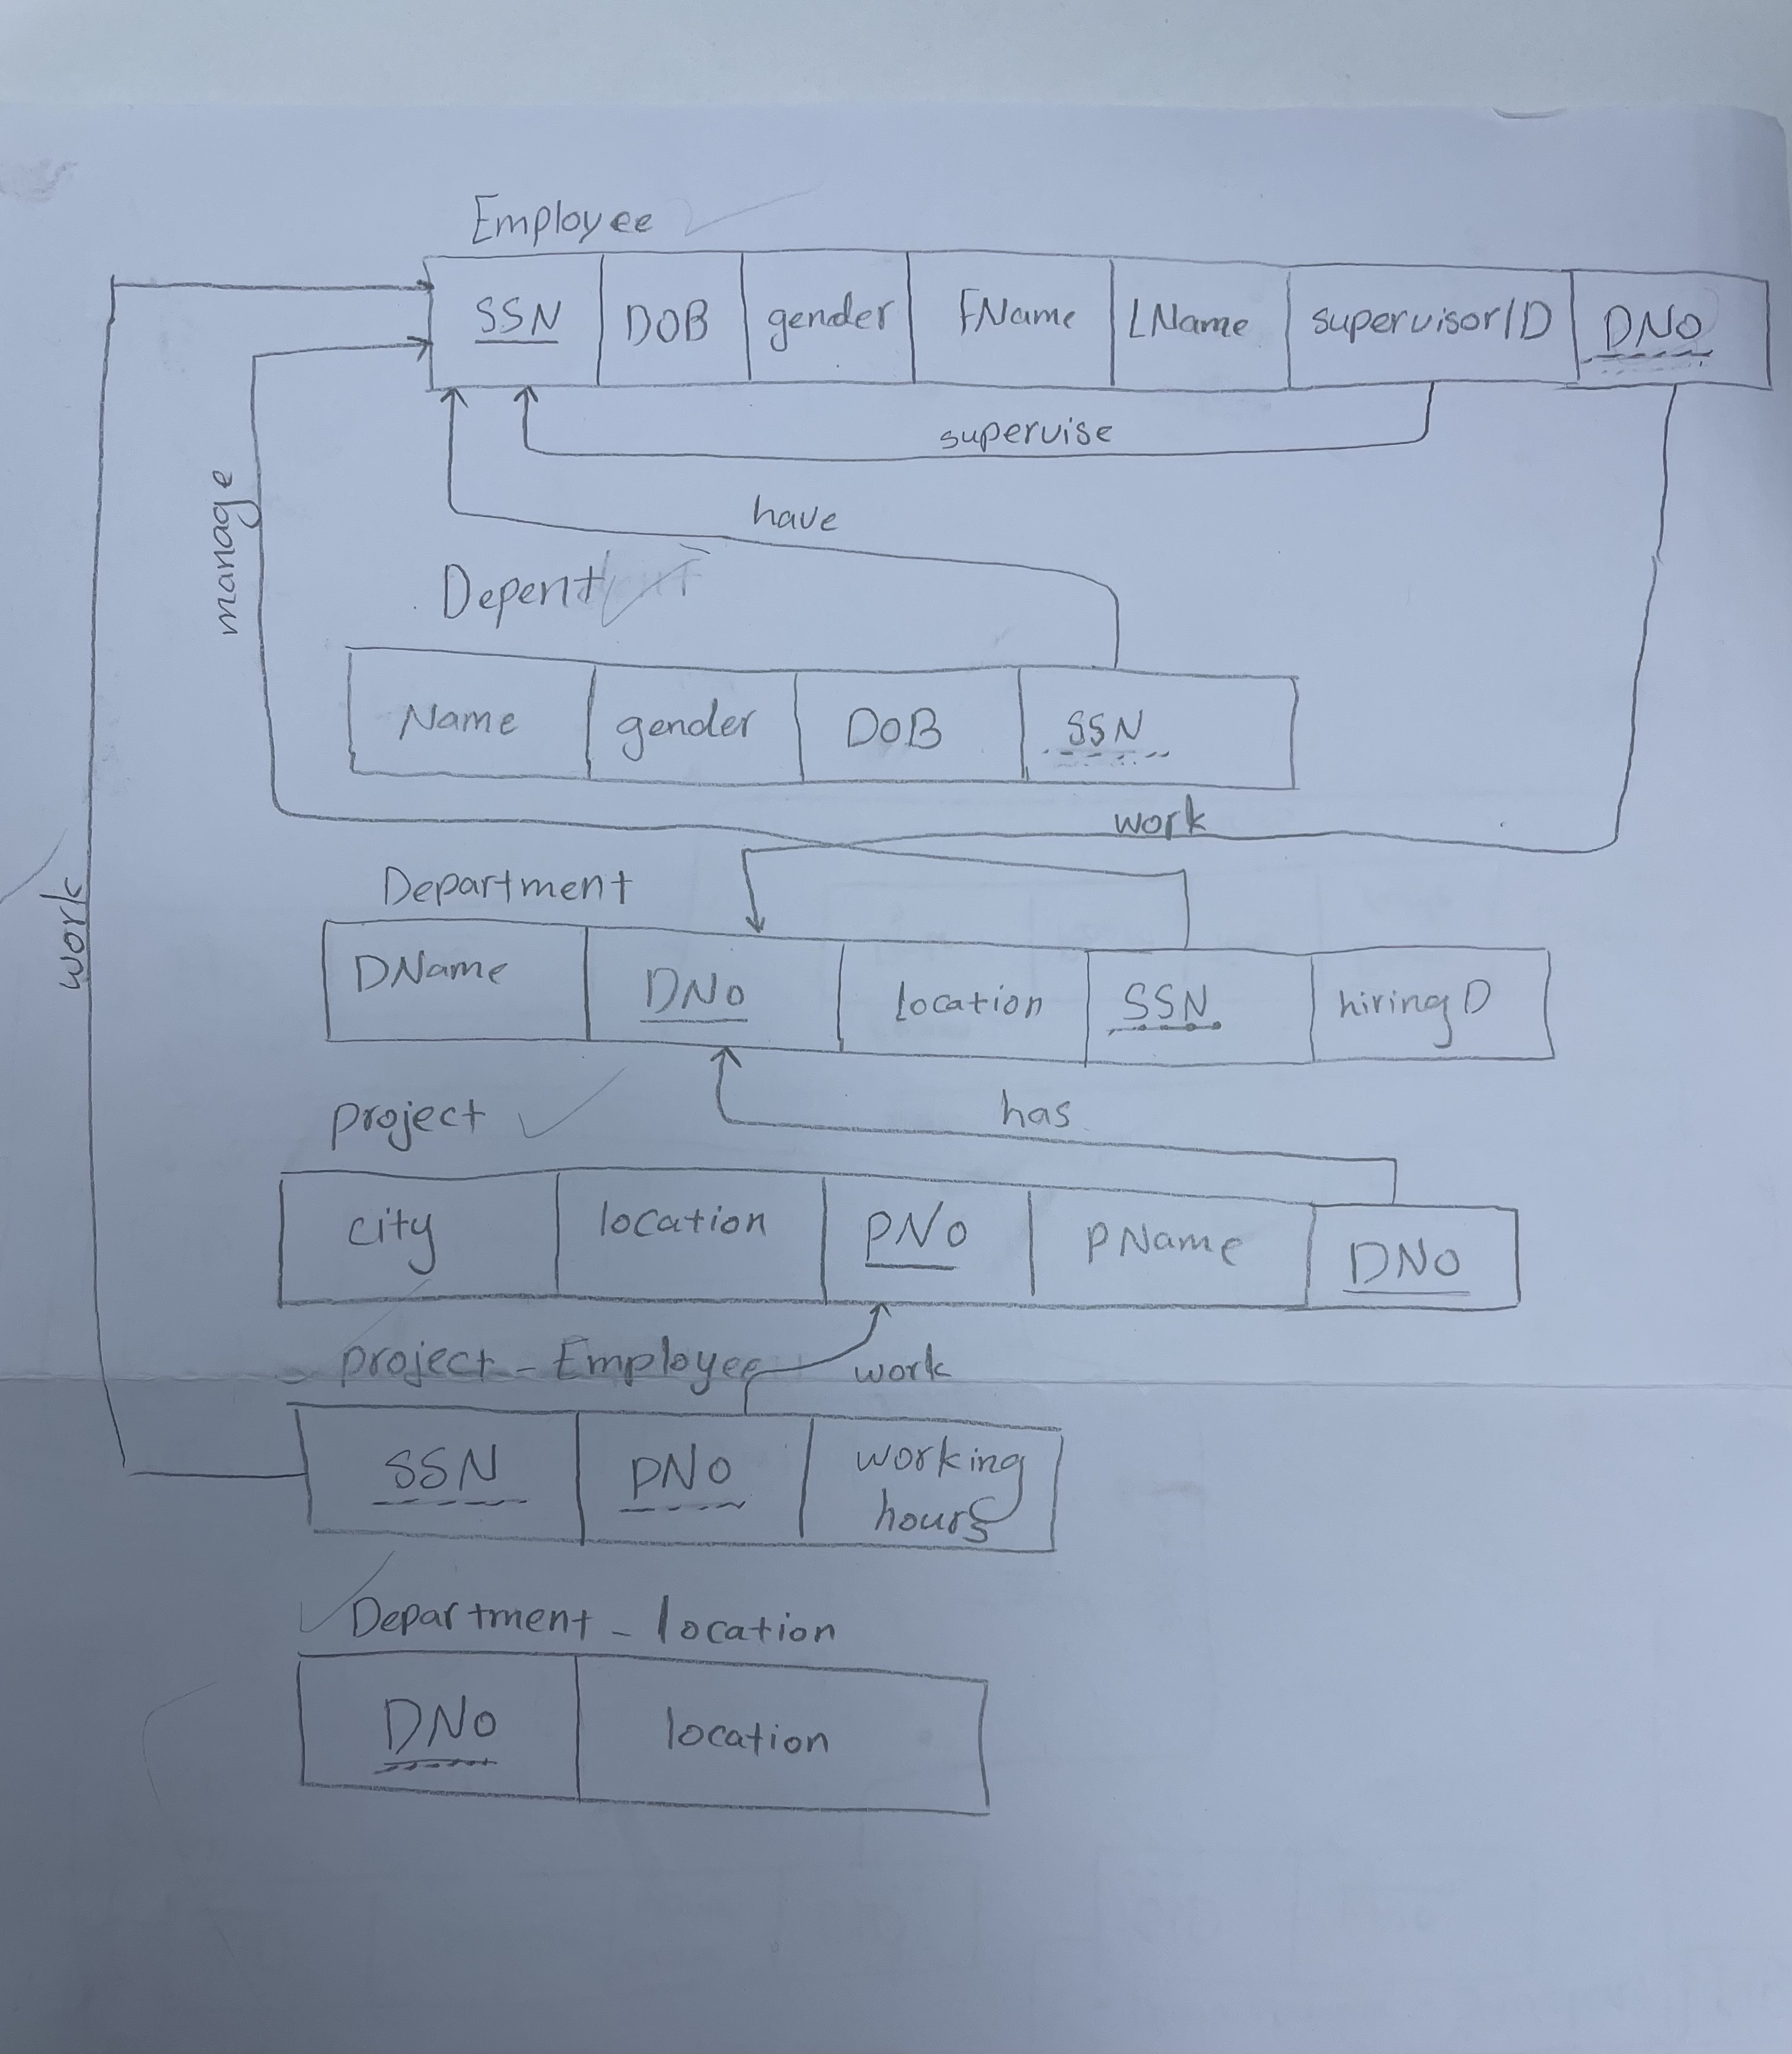 Employee
SSN DOB gender FName LName supervisorID DNo
supervise
have
manage
Depent
Name gender DOB SSN
work
Department
DName DNo location SSN hiringD
work
project
has
city location PNo PName DNo
project - Employee work
SSN PNo working hours
Department - location
DNo location